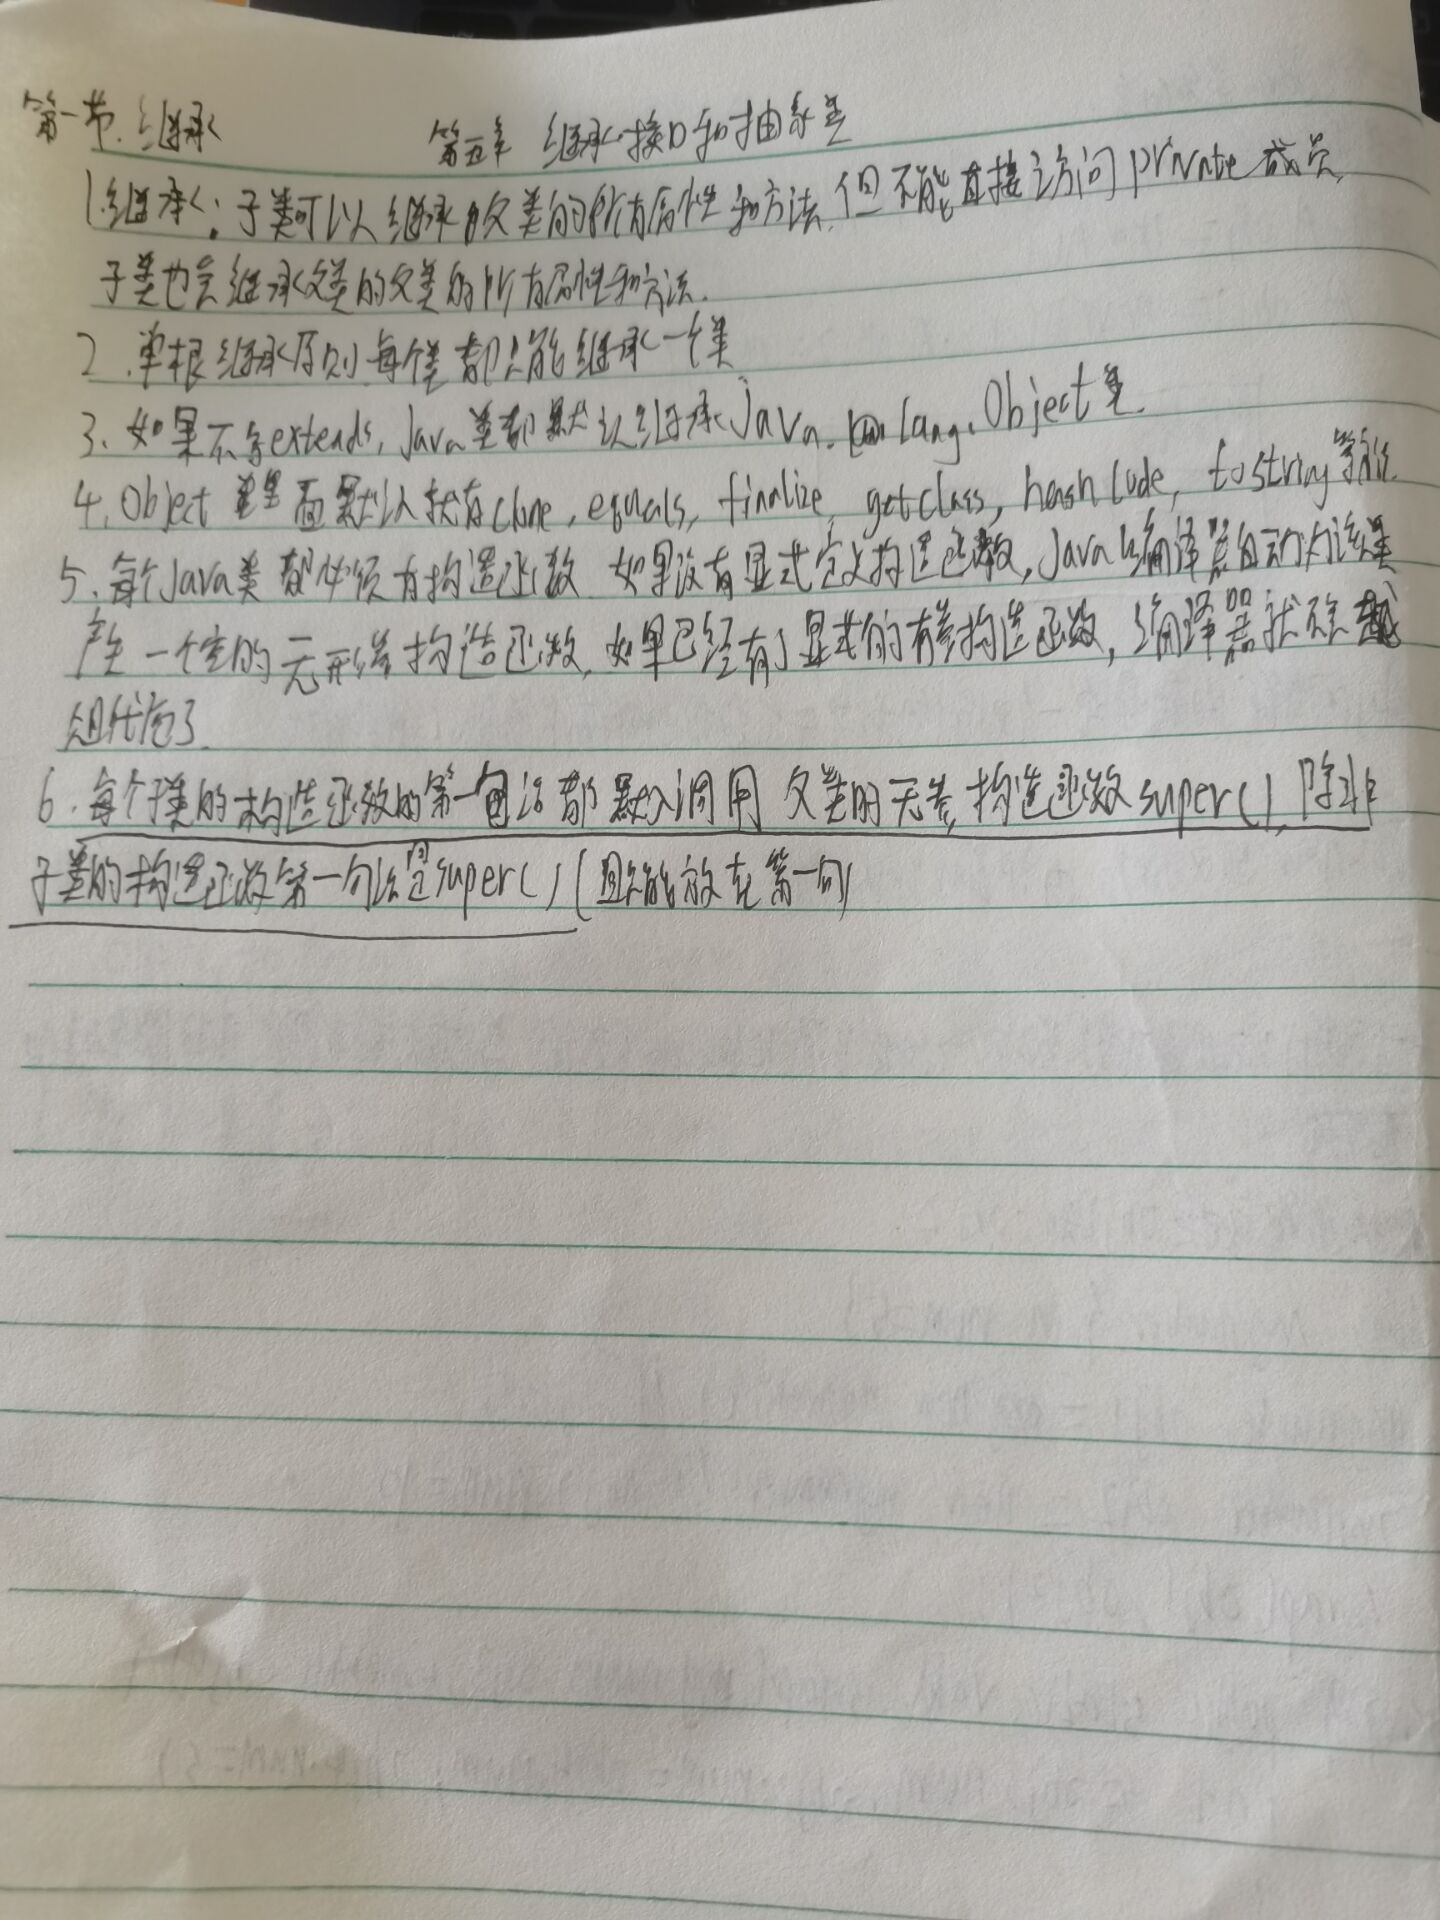 第五章 继承接口和抽象类
第一节.继承
1.继承:子类可以继承父类的所有属性和方法,但不能直接访问private成员,
子类也会继承父类的父类的所有属性和方法.
2.单根继承原则,每个类都只能继承一个类
3.如果不写extends,Java类都默认继承java.lang.Object类.
4.Object类里面默认就有clone,equals,finalize,getclass,hashCode,toString等方法.
5.每个Java类都必须有构造函数.如果没有显式定义构造函数,Java编译器自动为该类
产生一个空的无形参构造函数.如果已经有了显式的有参构造函数,编译器就不会越
俎代庖了.
6.每个子类的构造函数的第一句话都默认调用父类的无参构造函数super(),除非
子类的构造函数第一句话是super()(且只能放在第一句)